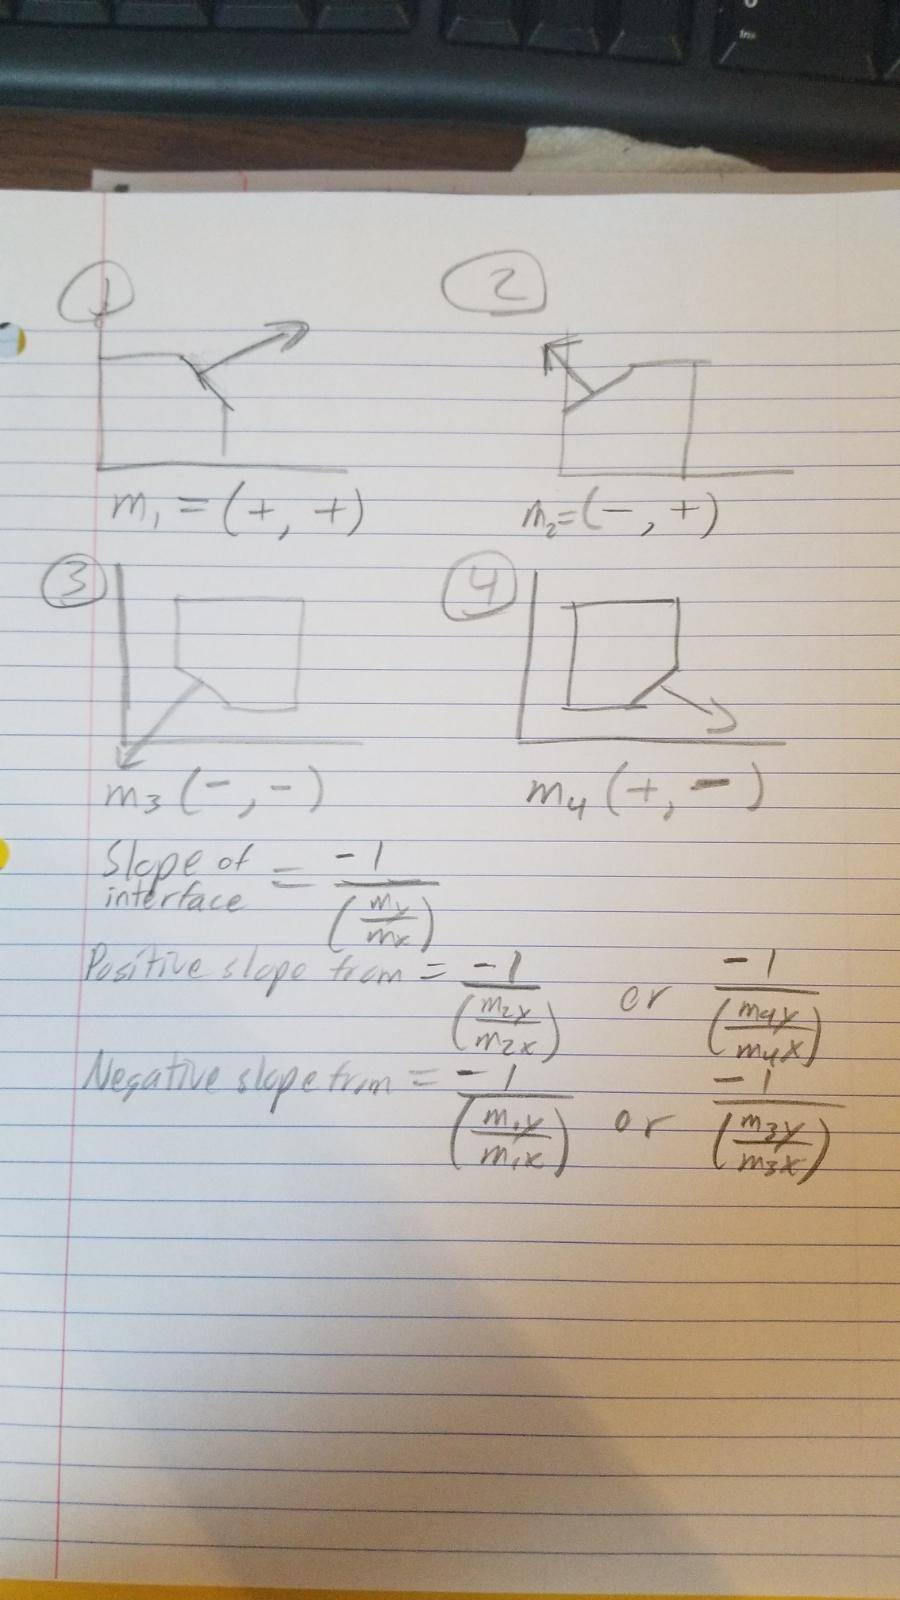 1 2
m₁ = (+, +) m₂=(-, +)
3 4
m3 (-, -) m4 (+, -)
Slope of interface = -1/(my/mx)
Positive slope from = -1/(m2y/m2x) or -1/(m4y/m4x)
Negative slope from = -1/(m1y/m1x) or -1/(m3y/m3x)